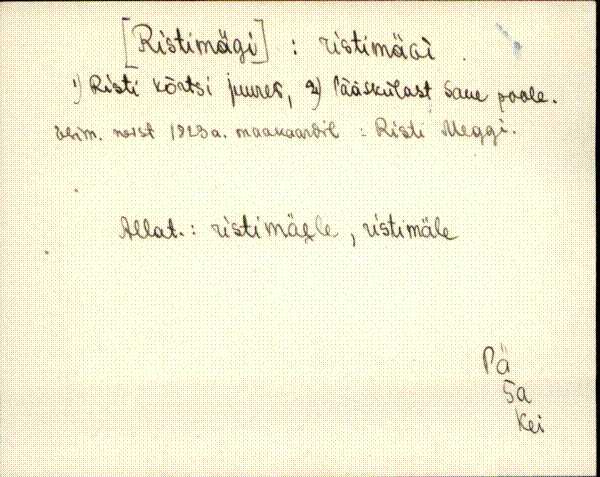 [Ristimägi] : ristimäɢi.
1) Risti kõrtsi juures, 2) Pääskülast Saue poole.
esim. neist 1923 a. maakaardil : Risti Meggi.
Allat. : ristimäɢ̆le, ristimäle
Pä
Sa
Kei